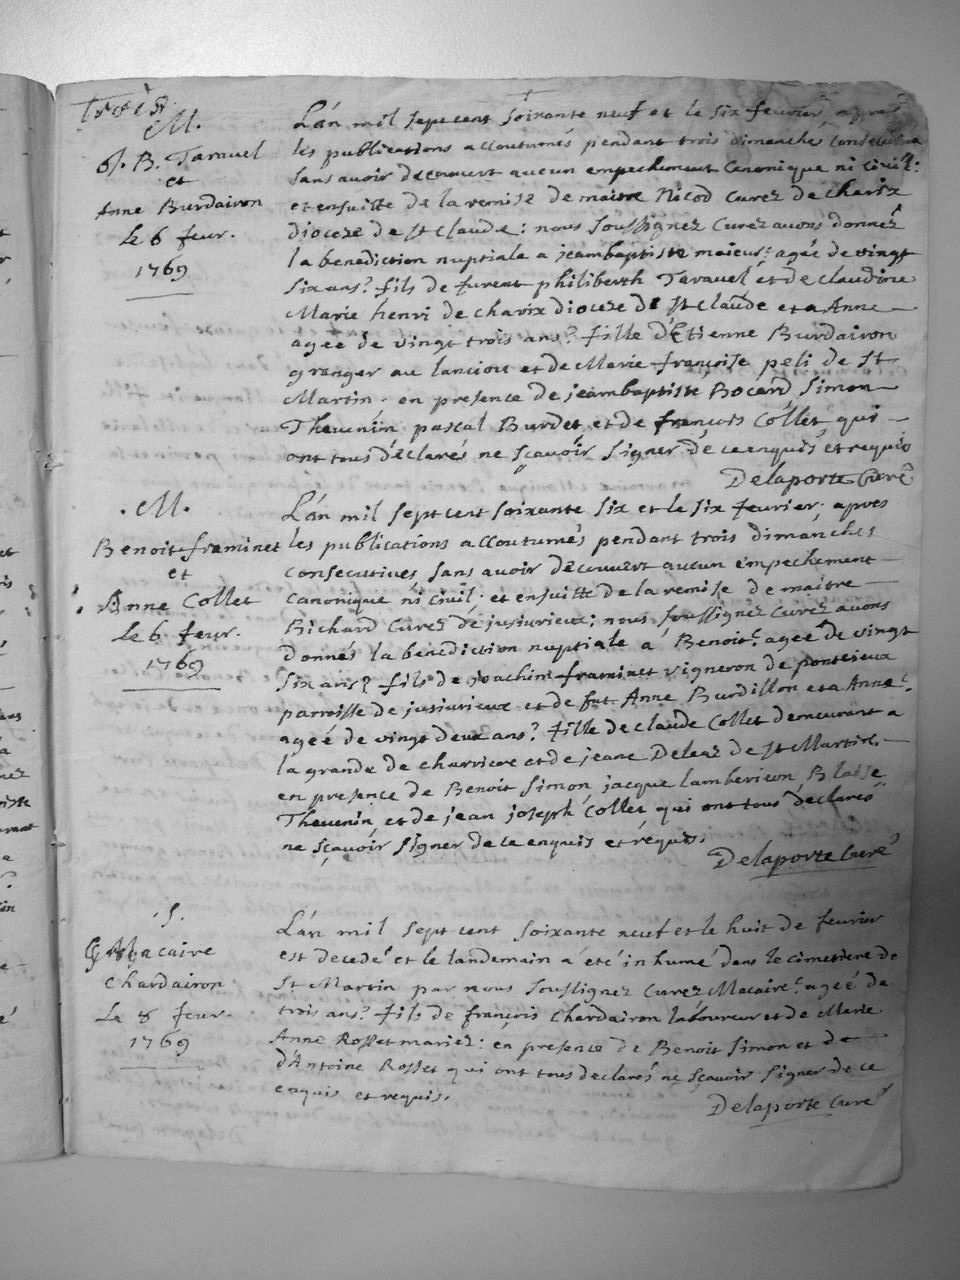 trois
M.
B. Taravel
et
Anne Burdairon
Le 6 feur.
1769
L'an mil sept cent soixante neuf et le six fevrier, apres
les publications accoutumés pendant trois dimanche consecutive
sans avoir decouvert aucun empechement canonique ni civil:
et ensuitte de la remise de maitre Nicod Curez de charix
dioceze de st Claude: nous soussignez Curez avons donnez
la benediction nuptiale a jeambaptiste majeur: agée de vingt
six ans? fils de furent philiberth Taravel et de claudine
Marie henri de charix dioceze de st Claude et a Anne
agée de vingt trois ans? fille d'Etienne Burdairon
granger au lanciou et de Marie françoise peli de st
Martin. en presence de jeambaptiste Bocard Simon
Thevenin pascal Burdet et de françois Collet qui
ont tous déclarés ne sçavoir signer de ce enquis et requis
Delaporte Curé
M.
Benoit framinet
et
Anne Collet
Le 6 feur.
1769
L'an mil sept cent soixante six et le six fevrier, apres
les publications accoutumés pendant trois dimanches
consecutives sans avoir decouvert aucun empechement
canonique ni civil. et ensuitte de la remise de maitre
Richard Curez de jusiurieux; nous soussignez Curez avons
donnés la benediction nuptiale a Benoit: agee de vingt
six ans? fils de joachim framinet vigneron de pontcieux
parroisse de jusiurieux et de fut Anne Burdillon et a Anne:
ageé de vingt deux ans? fille de claude Collet demeurant a
la grande de charriere et de jeane Deleaz de st Martin.
en presence de Benoit Simon jacque lamberieon Blaise
Thevenin et de jean joseph Collet qui ont tous declares
ne sçavoir signer de ce enquis et requis.
Delaporte Curé
S.
Macaire
Chardairon
Le 8 feur.
1769
L'an mil sept cent soixante neuf et le huit de fevrier
est decedé et le landemain a été inhumé dans le cimetiere de
st Martin par nous soussignez Curez Macaire: ageé de
trois ans? fils de françois Chardairon laboureur et de Marie
Anne Rosset mariez: en presence de Benoit Simon et de
d'Antoine Rosset qui ont tous declarés ne sçavoir signer de ce
enquis et requis.
Delaporte Curé